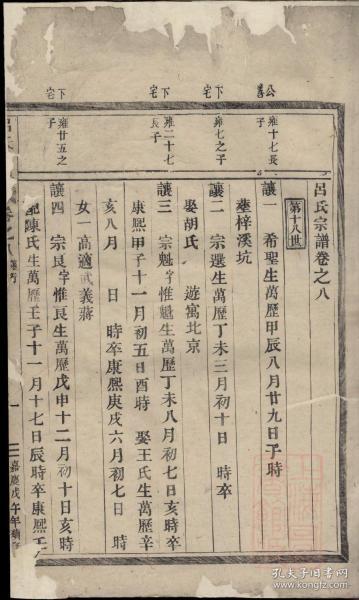 呂氏宗譜卷之八
第十八世
公墓
雍十七長子
讓一 希聖生萬歷甲辰八月廿九日子時
葬梓溪坑
下宅
雍七之子
讓二 宗選生萬歷丁未三月初十日 時卒
娶胡氏 遊寓北京
下宅
雍二十七長子
讓三 宗魁字惟魁生萬歷丁未八月初七日亥時卒
康熙甲子十一月初五日酉時 娶王氏生萬歷辛
亥八月 日 時卒康熙庚戌六月初七日 時
女一高適武義蔣
下宅
雍廿五之子
讓四 宗良字惟良生萬歷戊申十二月初十日亥時
配陳氏生萬歷壬子十一月十七日辰時卒康熙壬
一
嘉慶戊午年
孔夫子旧书网